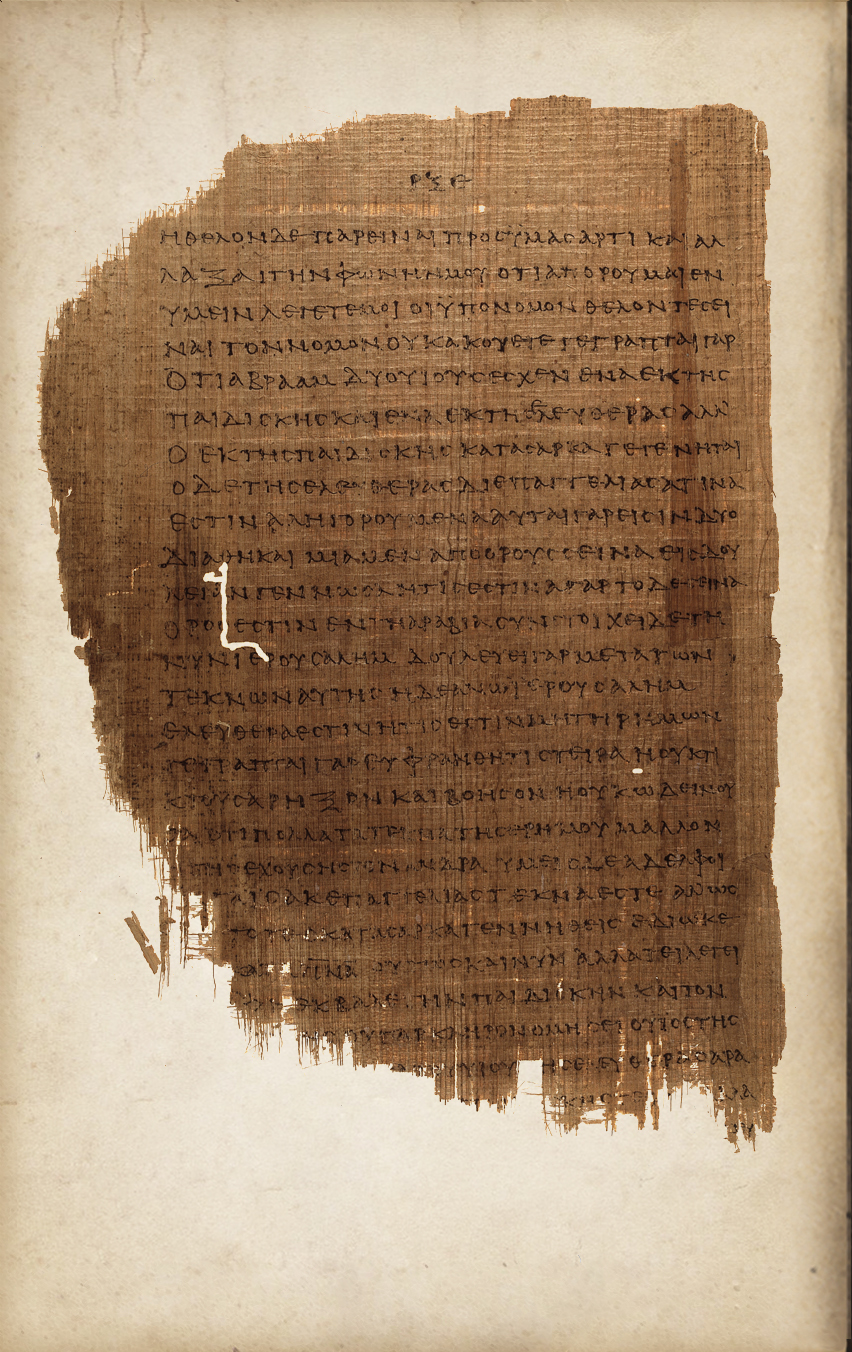 ΡΞΕ
ΗΘΕΛΟΝΔΕ ΠΑΡΕΙΝΑΙ ΠΡΟϹΫΜΑϹΑΡΤΙ ΚΑΙ ΑΛ
ΛΑΞΑΙΤΗΝ ΦΩΝΗΝΜΟΥ ΟΤΙΑΠΟΡΟΥΜΑΙΕΝ
ΫΜΕΙΝ ΛΕΓΕΤΕΜΟΙ ΟΙΫΠΟΝΟΜΟΝ ΘΕΛΟΝΤΕϹΕΙ
ΝΑΙ ΤΟΝΝΟΜΟΝ ΟΥΚΑΚΟΥΕΤΕ ΓΕΓΡΑΠΤΑΙ ΓΑΡ
ΟΤΙΑΒΡΑΑΜ ΔΥΟΥΙΟΥϹΕϹΧΕΝ ΕΝΑΕΚΤΗϹ
ΠΑΙΔΙϹΚΗϹΚΑΙΕΝΑ ΕΚΤΗϹΕΛΕΥΘΕΡΑϹ ΑΛΛ
Ο ΕΚΤΗϹΠΑΙΔΙϹΚΗϹ ΚΑΤΑϹΑΡΚΑ ΓΕΓΕΝΗΤΑΙ
Ο ΔΕΤΗϹΕΛΕΥΘΕΡΑϹ ΔΙΕΠΑΓΓΕΛΙΑϹ ΑΤΙΝΑ
ΕϹΤΙΝ ΑΛΛΗΓΟΡΟΥΜΕΝΑ ΑΥΤΑΙΓΑΡΕΙϹΙΝ ΔΥΟ
ΔΙΑΘΗΚΑΙ ΜΙΑΜΕΝ ΑΠΟΟΡΟΥϹ ϹΕΙΝΑ ΕΙϹΔΟΥ
ΛΕΙΑΝ ΓΕΝΝΩϹΑ ΗΤΙϹΕϹΤΙΝ ΑΓΑΡ ΤΟΔΕ ϹΕΙΝΑ
ΟΡΟϹ ΕϹΤΙΝ ΕΝ ΤΗΑΡΑΒΙΑ ϹΥΝϹΤΟΙΧΕΙ ΔΕΤΗ
ΝΥΝΙΕΡΟΥϹΑΛΗΜ ΔΟΥΛΕΥΕΙΓΑΡ ΜΕΤΑΤΩΝ
ΤΕΚΝΩΝ ΑΥΤΗϹ ΗΔΕΑΝΩ ΙΕΡΟΥϹΑΛΗΜ
ΕΛΕΥΘΕΡΑΕϹΤΙΝ ΗΤΙϹ ΕϹΤΙΝ ΜΗΤΗΡΗΜΩΝ
ΓΕΓΡΑΠΤΑΙ ΓΑΡ ΕΥΦΡΑΝΘΗΤΙ ϹΤΕΙΡΑ ΗΟΥΚΤΙ
ΚΤΟΥϹΑ ΡΗΞΟΝ ΚΑΙΒΟΗϹΟΝ ΗΟΥΚΩΔΕΙΝΟΥ
ΠΟΛΛΑ ΤΑΤΕΚΝΑΤΗϹΕΡΗΜΟΥ ΜΑΛΛΟΝ
ΕΧΟΥϹΗϹ ΤΟΝ ΑΝΔΡΑ ΫΜΕΙϹΔΕ ΑΔΕΛΦΟΙ
ΙϹΑΚΕΠΑΓΓΕΛΙΑϹ ΤΕΚΝΑ ΕϹΤΕ ΑΛΛΩϹ
ΤΟΤΕ Ο ΚΑΤΑϹΑΡΚΑΓΕΝΝΗΘΕΙϹ ΕΔΙΩΚΕ
ΠΝΑ ΟΥΤΩϹΚΑΙΝΥΝ ΑΛΛΑΤΕΙΛΕΓΕΙ
ΕΚΒΑΛΕ ΤΗΝΠΑΙΔΙϹΚΗΝ ΚΑΙΤΟΝ
ΓΑΡ ΚΛΗΡΟΝΟΜΗϹΕΙ ΟΥΪΟϹΤΗϹ